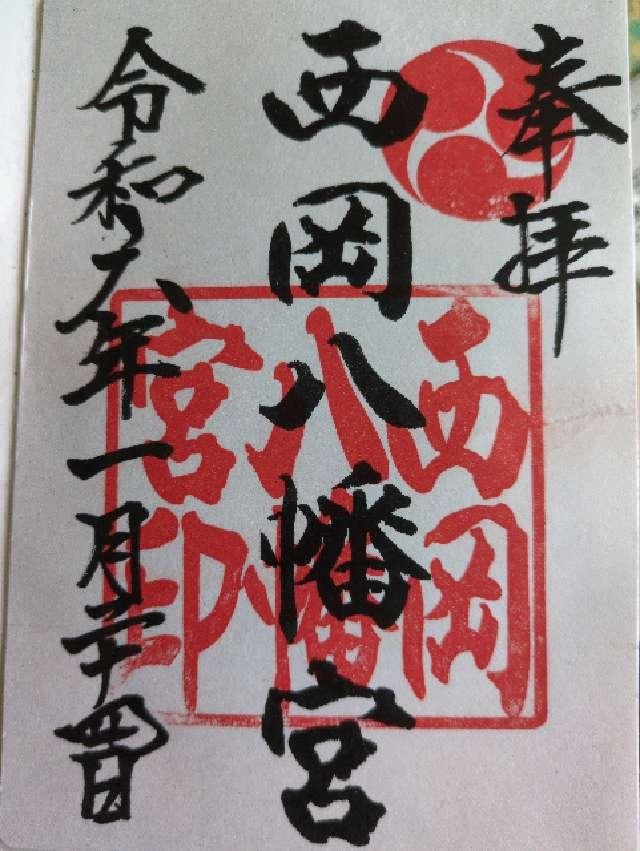 奉拝
西岡八幡宮
西岡
八幡
宮印
令和六年一月二十四日